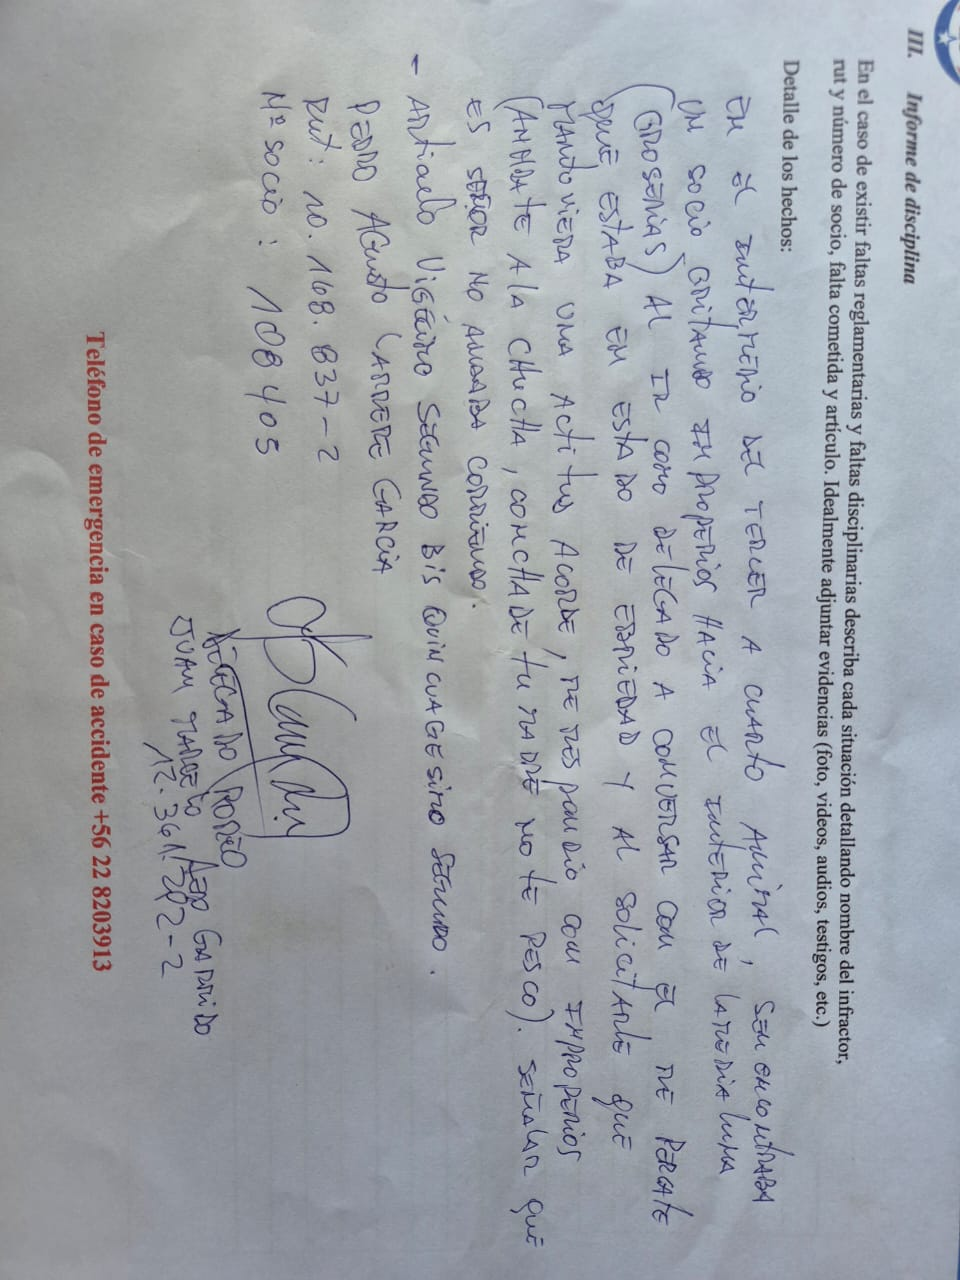 III. Informe de disciplina
En el caso de existir faltas reglamentarias y faltas disciplinarias describa cada situación detallando nombre del infractor,
rut y número de socio, falta cometida y artículo. Idealmente adjuntar evidencias (foto, videos, audios, testigos, etc.)
Detalle de los hechos:
EN EL INTERMEDIO DEL TERCER A CUARTO ANIMAL, SEM ENCONTRABA
UN SOCIO GRITANDO IMPROPERIOS HACIA EL INTERIOR DE LA MEDIA LUNA
(GROSERIAS) AL IR COMO DELEGADO A CONVERSAR CON EL ME PERCATE
QUE ESTABA EN ESTADO DE EBRIEDAD Y AL SOLICITARLE QUE
MANTUVIERA UNA ACTITUD ACORDE, ME RESPONDIO CON IMPROPERIOS
(ANDATE A LA CHUCHA, CONCHA DE TU MADRE NO TE PESCO). SEÑALAR QUE
ES SEÑOR NO ANDABA CORRIENDO.
- ARTICULO VIGÉSIMO SEGUNDO BIS QUINCUAGESIMO SEGUNDO.
PEDRO AGUSTO LARRERE GARCIA
RUT: 10.168.837-2
Nº SOCIO: 108405
DELEGADO RODEO
JUAN MARCELO GARRIDO
12.361.
Teléfono de emergencia en caso de accidente +56 22 8203913